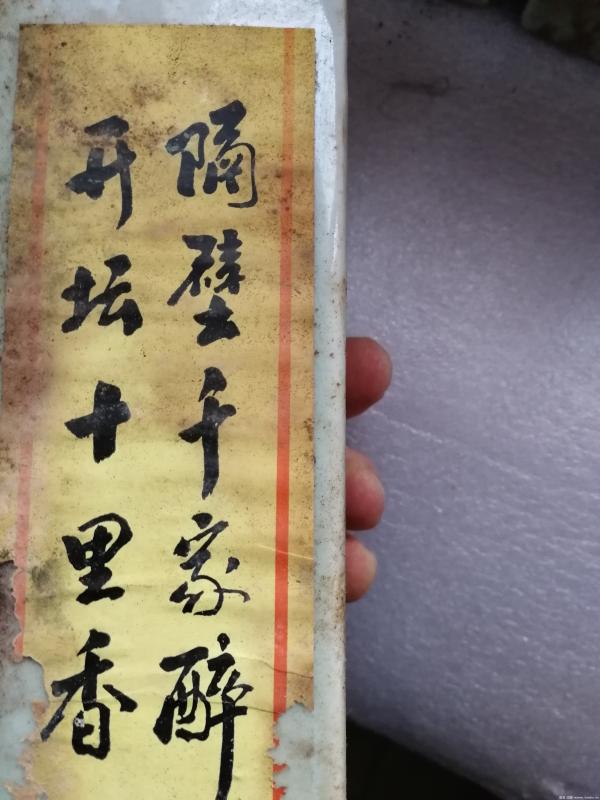 隔壁千家醉
开坛十里香